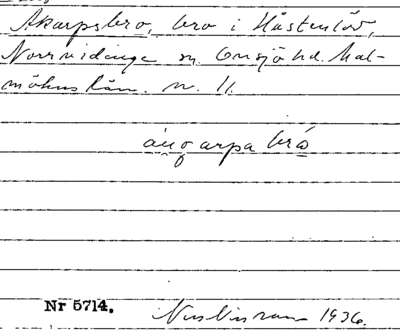 Åkarpsbro, bro i Hästenlöv,
Norrvidinge sn. Onsjö hd. Mal-
möhus län. nr. 11.
åŋarpa brö
Nr 5714.
1936.